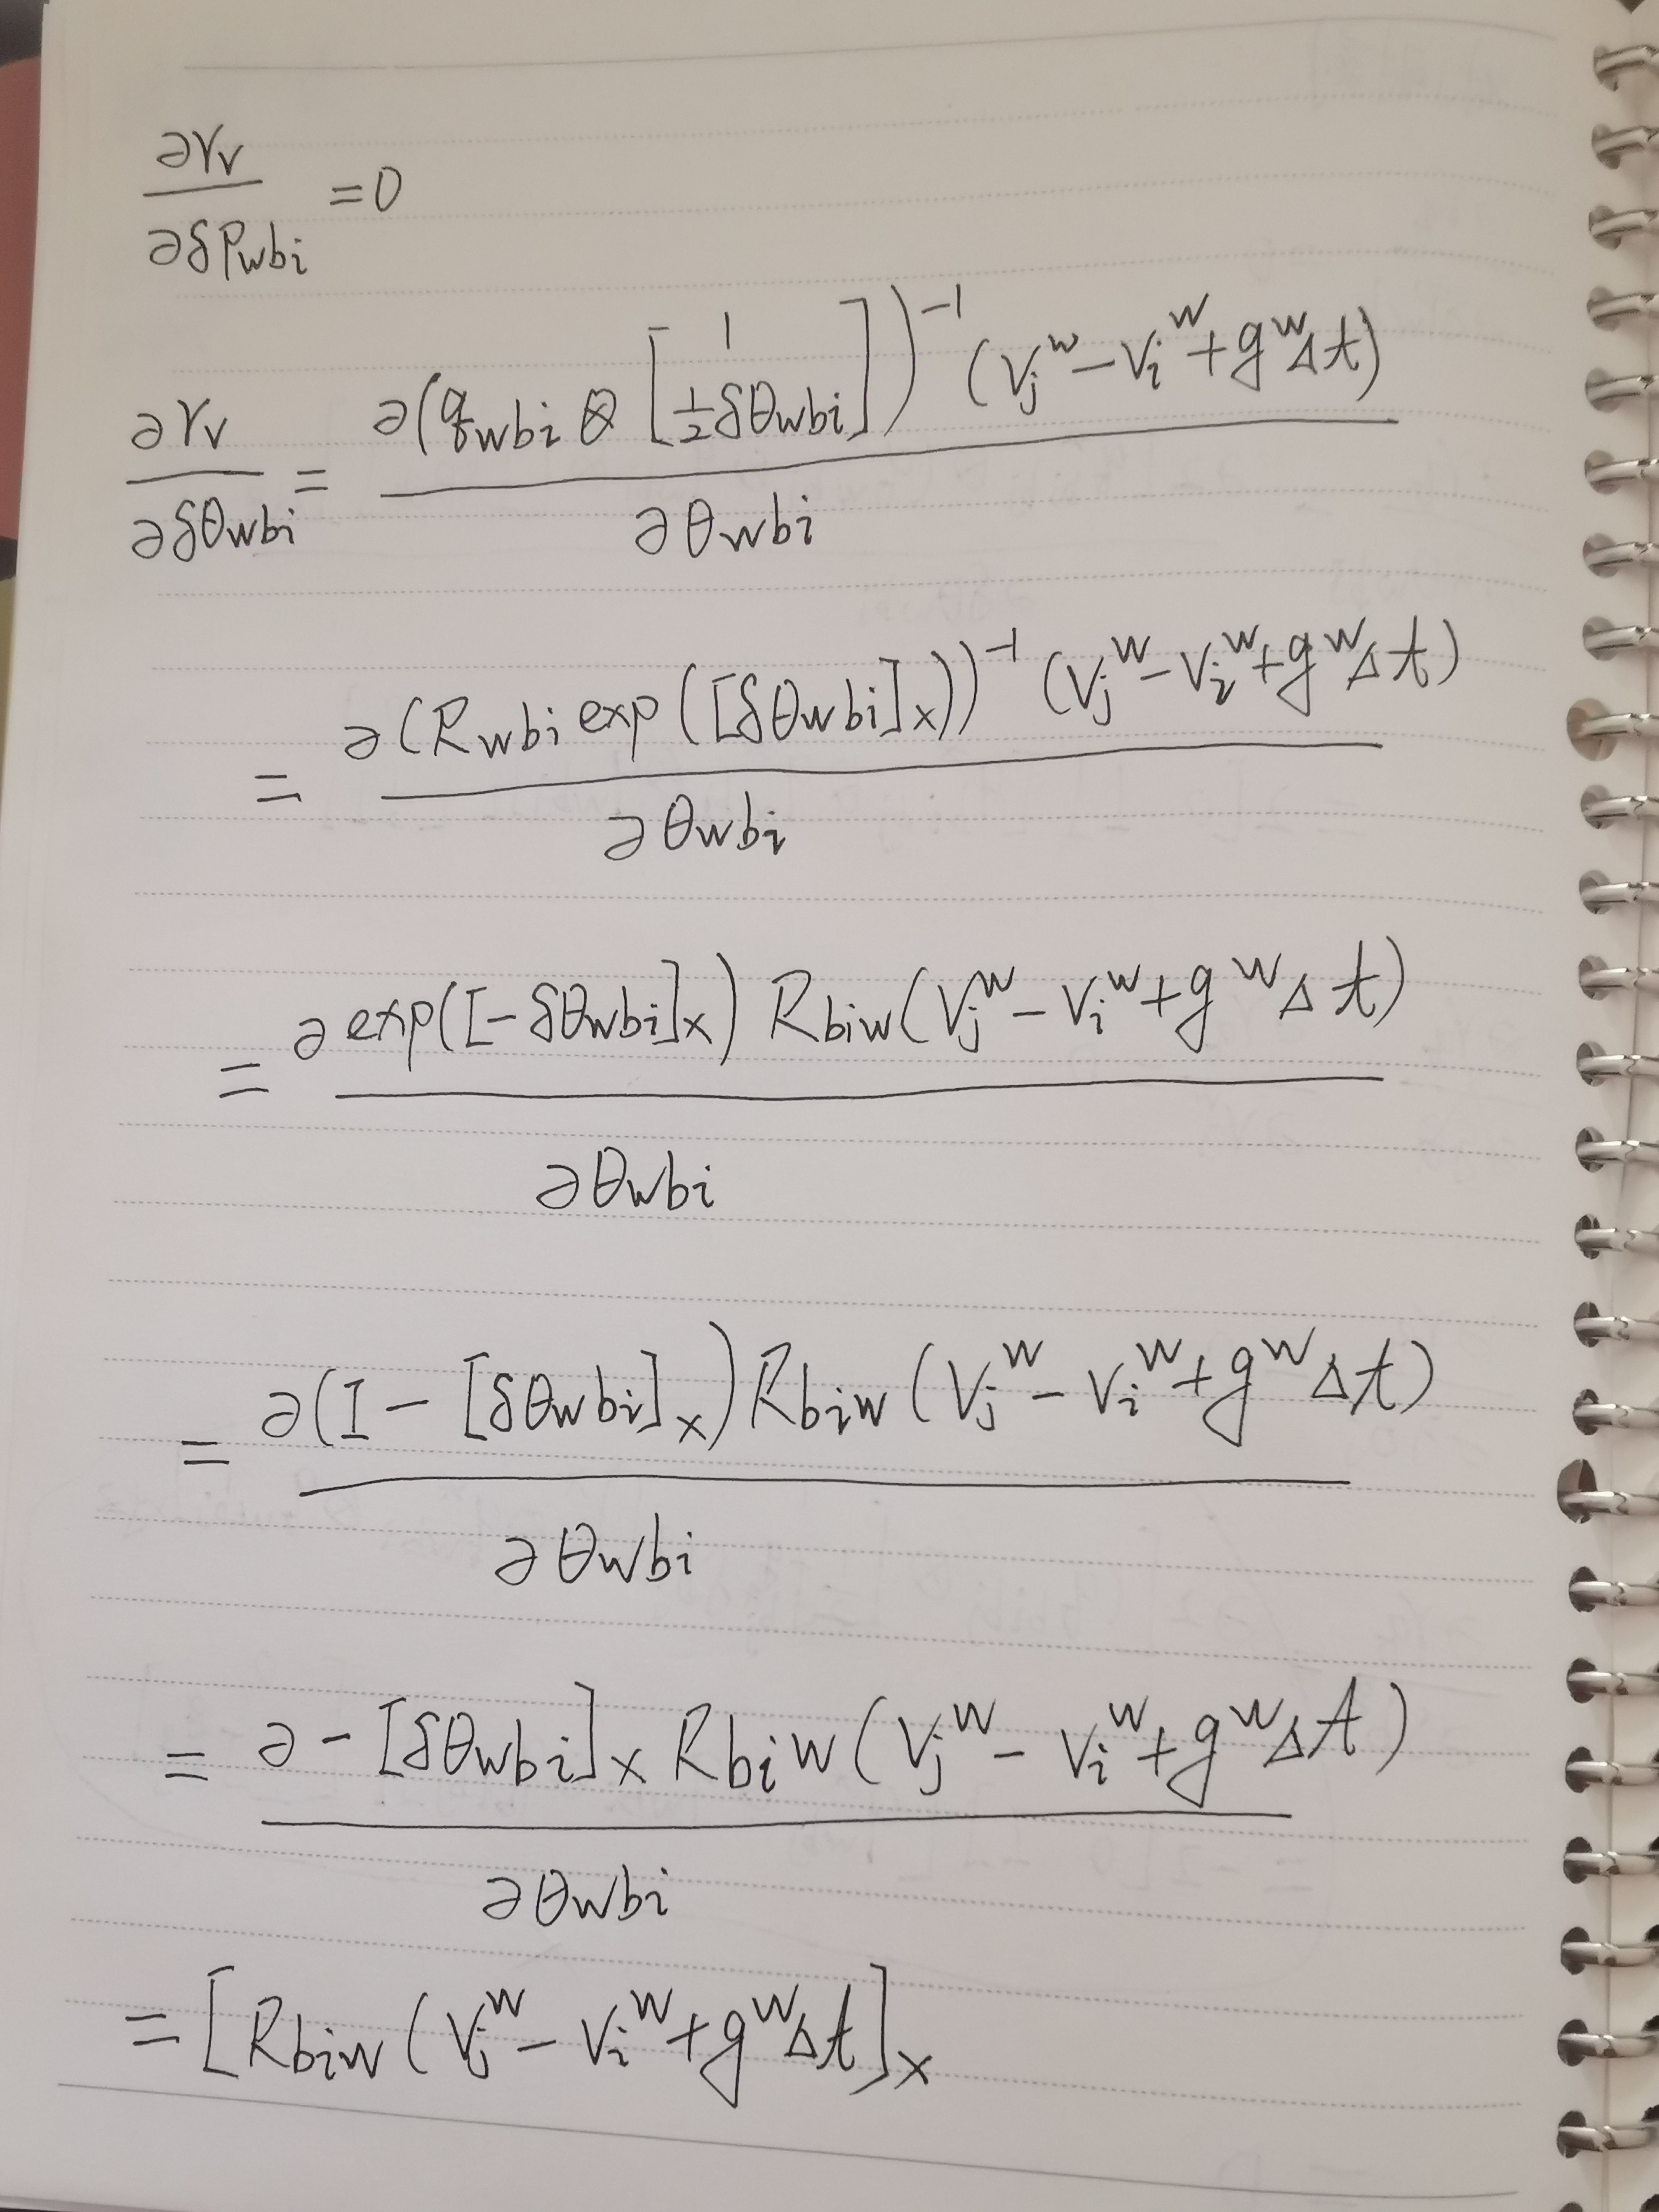 ∂r_v / ∂δp_{wb_i} = 0
∂r_v / ∂δθ_{wb_i} = ∂(q_{wb_i} ⊗ [1; ½δθ_{wb_i}])^{-1} (v_j^w - v_i^w + g^w Δt) / ∂θ_{wb_i}
= ∂(R_{wb_i} exp([δθ_{wb_i}]_×))^{-1} (v_j^w - v_i^w + g^w Δt) / ∂θ_{wb_i}
= ∂ exp([-δθ_{wb_i}]_×) R_{b_iw} (v_j^w - v_i^w + g^w Δt) / ∂θ_{wb_i}
= ∂(I - [δθ_{wb_i}]_×) R_{b_iw} (v_j^w - v_i^w + g^w Δt) / ∂θ_{wb_i}
= ∂ - [δθ_{wb_i}]_× R_{b_iw} (v_j^w - v_i^w + g^w Δt) / ∂θ_{wb_i}
= [R_{b_iw} (v_j^w - v_i^w + g^w Δt]_×